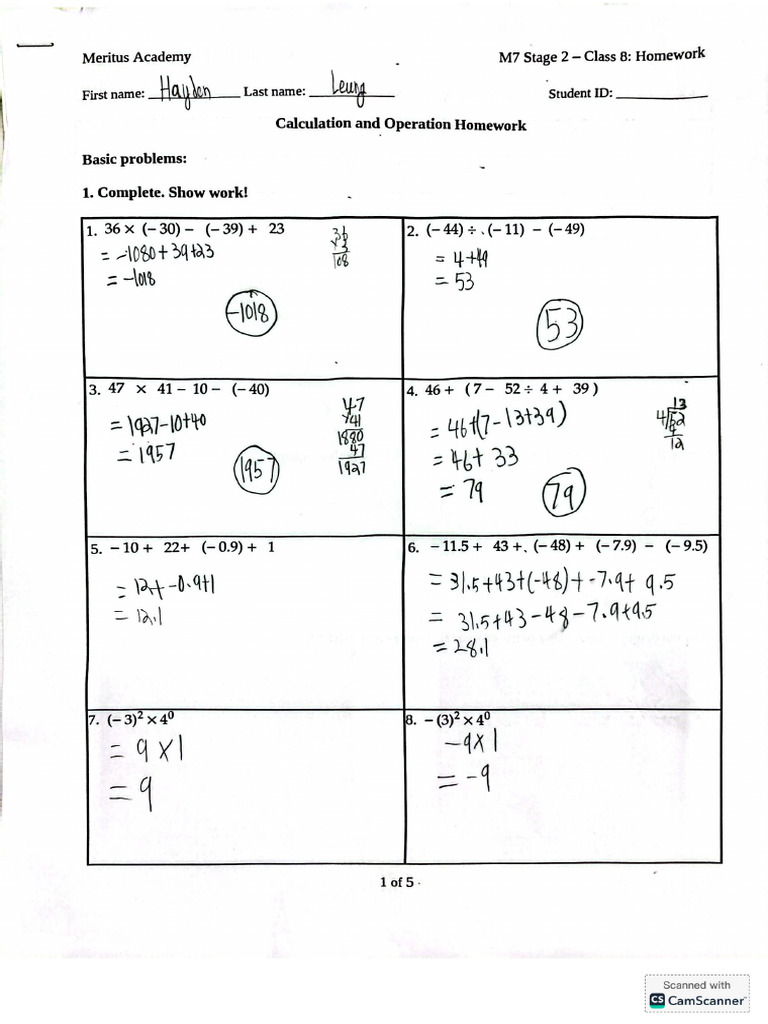 Meritus Academy M7 Stage 2 – Class 8: Homework
First name: Hayden Last name: Leung Student ID:
Calculation and Operation Homework
Basic problems:
1. Complete. Show work!
1. 36 × (− 30) − (− 39) + 23
= -1080 + 39 + 23
= -1018
-1018
36
×3
108
2. (− 44) ÷ (− 11) − (− 49)
= 4 + 49
= 53
53
3. 47 × 41 − 10 − (− 40)
= 1927 - 10 + 40
= 1957
1957
47
×41
1880
47
1927
4. 46 + (7 − 52 ÷ 4 + 39)
= 46 + (7 - 13 + 39)
= 46 + 33
= 79
79
13
4/52
4
12
5. − 10 + 22 + (− 0.9) + 1
= 12 + -0.9 + 1
= 12.1
6. − 11.5 + 43 + (− 48) + (− 7.9) − (− 9.5)
= 31.5 + 43 + (-48) + -7.9 + 9.5
= 31.5 + 43 - 48 - 7.9 + 9.5
= 28.1
7. (− 3)² × 4⁰
= 9 × 1
= 9
8. − (3)² × 4⁰
-9 × 1
= -9
1 of 5
Scanned with
CS CamScanner